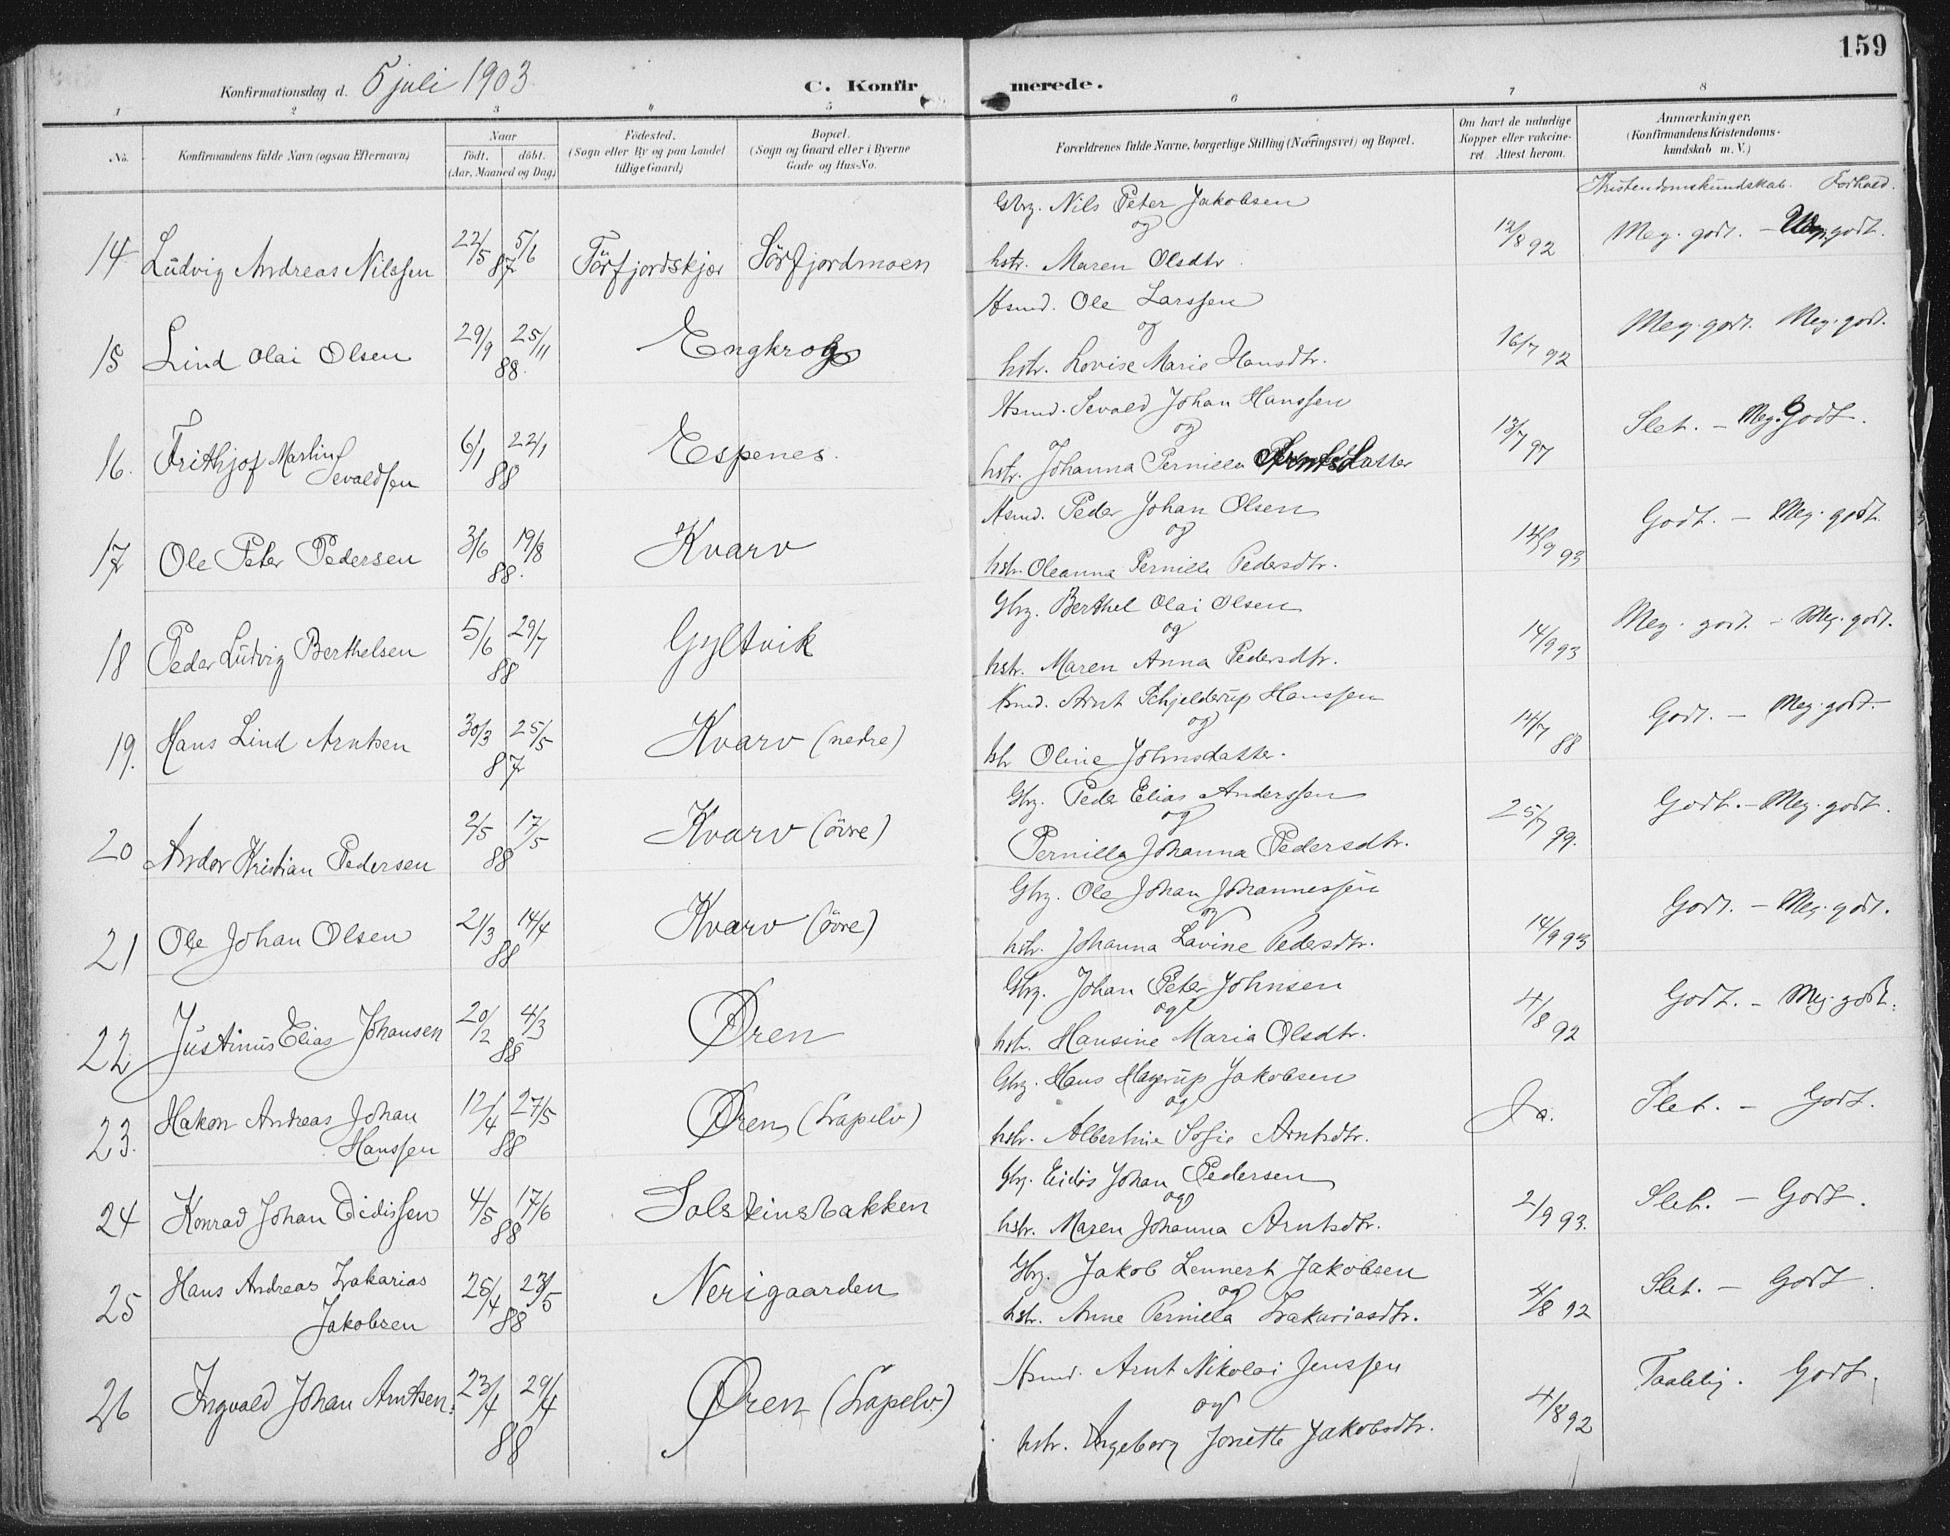 159
Konfirmationsdag d. 5 juli 1903.
C. Konfirmerede.
1 2 3 4 5 6 7 8
No.
Konfirmandens fulde Navn (ogsaa Efternavn)
Naar
födt. döbt.
(Aar, Maaned og Dag)
Födested.
(Sogn eller By og paa Landet
tillige Gaard)
Bopæl.
(Sogn og Gaard eller i Byerne
Gade og Hus-No.
Forældrenes fulde Navne, borgerlige Stilling (Næringsvei) og Bopæl.
Om havt de naturlige
Kopper eller vakcine-
ret. Attest herom.
Anmærkninger.
(Konfirmandens Kristendoms-
kundskab m. V.)
Kristendomskundskab. Forhold.
Gbrg. Nils Peter Jakobsen
og
14 Ludvig Andreas Nilssen 22/5 5/6 87 Sörfjordmoen hstr. Maren Olsdtr. 12/8 92 Meg. godt. - Meg. godt.
Hsmd. Ole Larssen
og
15 Lind Olai Olsen 29/9 25/11 88. Engkrog hstr. Lovise Marie Hansdtr. 16/7 92 Meg. godt. Meg. godt.
Hsmd. Sevald Johan Hanssen
og
16. Frithjof Martin Sevaldsen 6/1 22/1 88 Espenes. hstr. Johanna Pernilla Arntsdatter 13/7 97 Slet. - Godt.
Hsmd. Peder Johan Olsen
og
17 Ole Peter Pedersen 3/6 19/8 88. Kvarv hstr. Oleanna Pernilla Pedersdtr. 14/9 93 Godt. - Meg. godt
Gbrg. Berthel Olai Olsen
og
18 Peder Ludvig Berthelsen 5/6 29/7 88 Gyltvik hstr. Maren Anna Pedersdtr. 14/9 93 Meg. godt. - Meg. godt.
Hsmd. Arnt Schjelderup Hanssen
og
19. Hans Lind Arntsen 30/3 25/5 87 Kvarv (nedre) hstr Oline Johnsdatter. 14/7 88 Godt. - Meg. godt.
Gbrg. Peder Elias Anderssen
og
20 Andor Kristian Pedersen 2/5 17/5 88 Kvarv (övre) Pernilla Johanna Pedersdtr. 25/7 99. Godt. - Meg. godt.
Gbrg. Ole Johan Johannessen
og
21 Ole Johan Olsen 21/3 14/4 88 Kvarv (övre) hstr. Johanna Lavine Pedersdtr. 14/9 93 Godt. - Meg. godt.
Gbrg. Johan Peter Johnsen
og
22. Justinus Elias Johansen 20/2 4/3 88 Øren hstr. Hansine Maria Olsdtr. 4/8 92 Godt. - Meg. godt.
Gbrg. Hans Hagerup Jakobsen
og
23. Hakon Andreas Johan Hanssen 12/4 27/5 88 Øren (Lapelv) hstr. Albertine Sofie Arntsdtr. Ja. Slet. - Godt.
Gbrg. Eidis Johan Pedersen
og
24 Konrad Johan Eidissen 4/5 17/6 88 Solsteinsbakken hstr. Maren Johanna Arntsdtr. 2/9 93. Slet. - Godt.
Gbrg. Jakob Lennert Jakobsen
og
25 Hans Andreas Zakarias Jakobsen 25/4 23/5 88 Nerigaarden hstr. Anne Pernilla Zakariasdtr. 4/8 92 Slet. - Godt.
Hsmd. Arnt Nikolai Jenssen
og
26 Ingvald Johan Arntsen. 23/4 29/4 88 Øren (Lapelv) hstr. Ingeborg Jonette Jakobsdtr. 4/8 92 Taalelig. Godt.